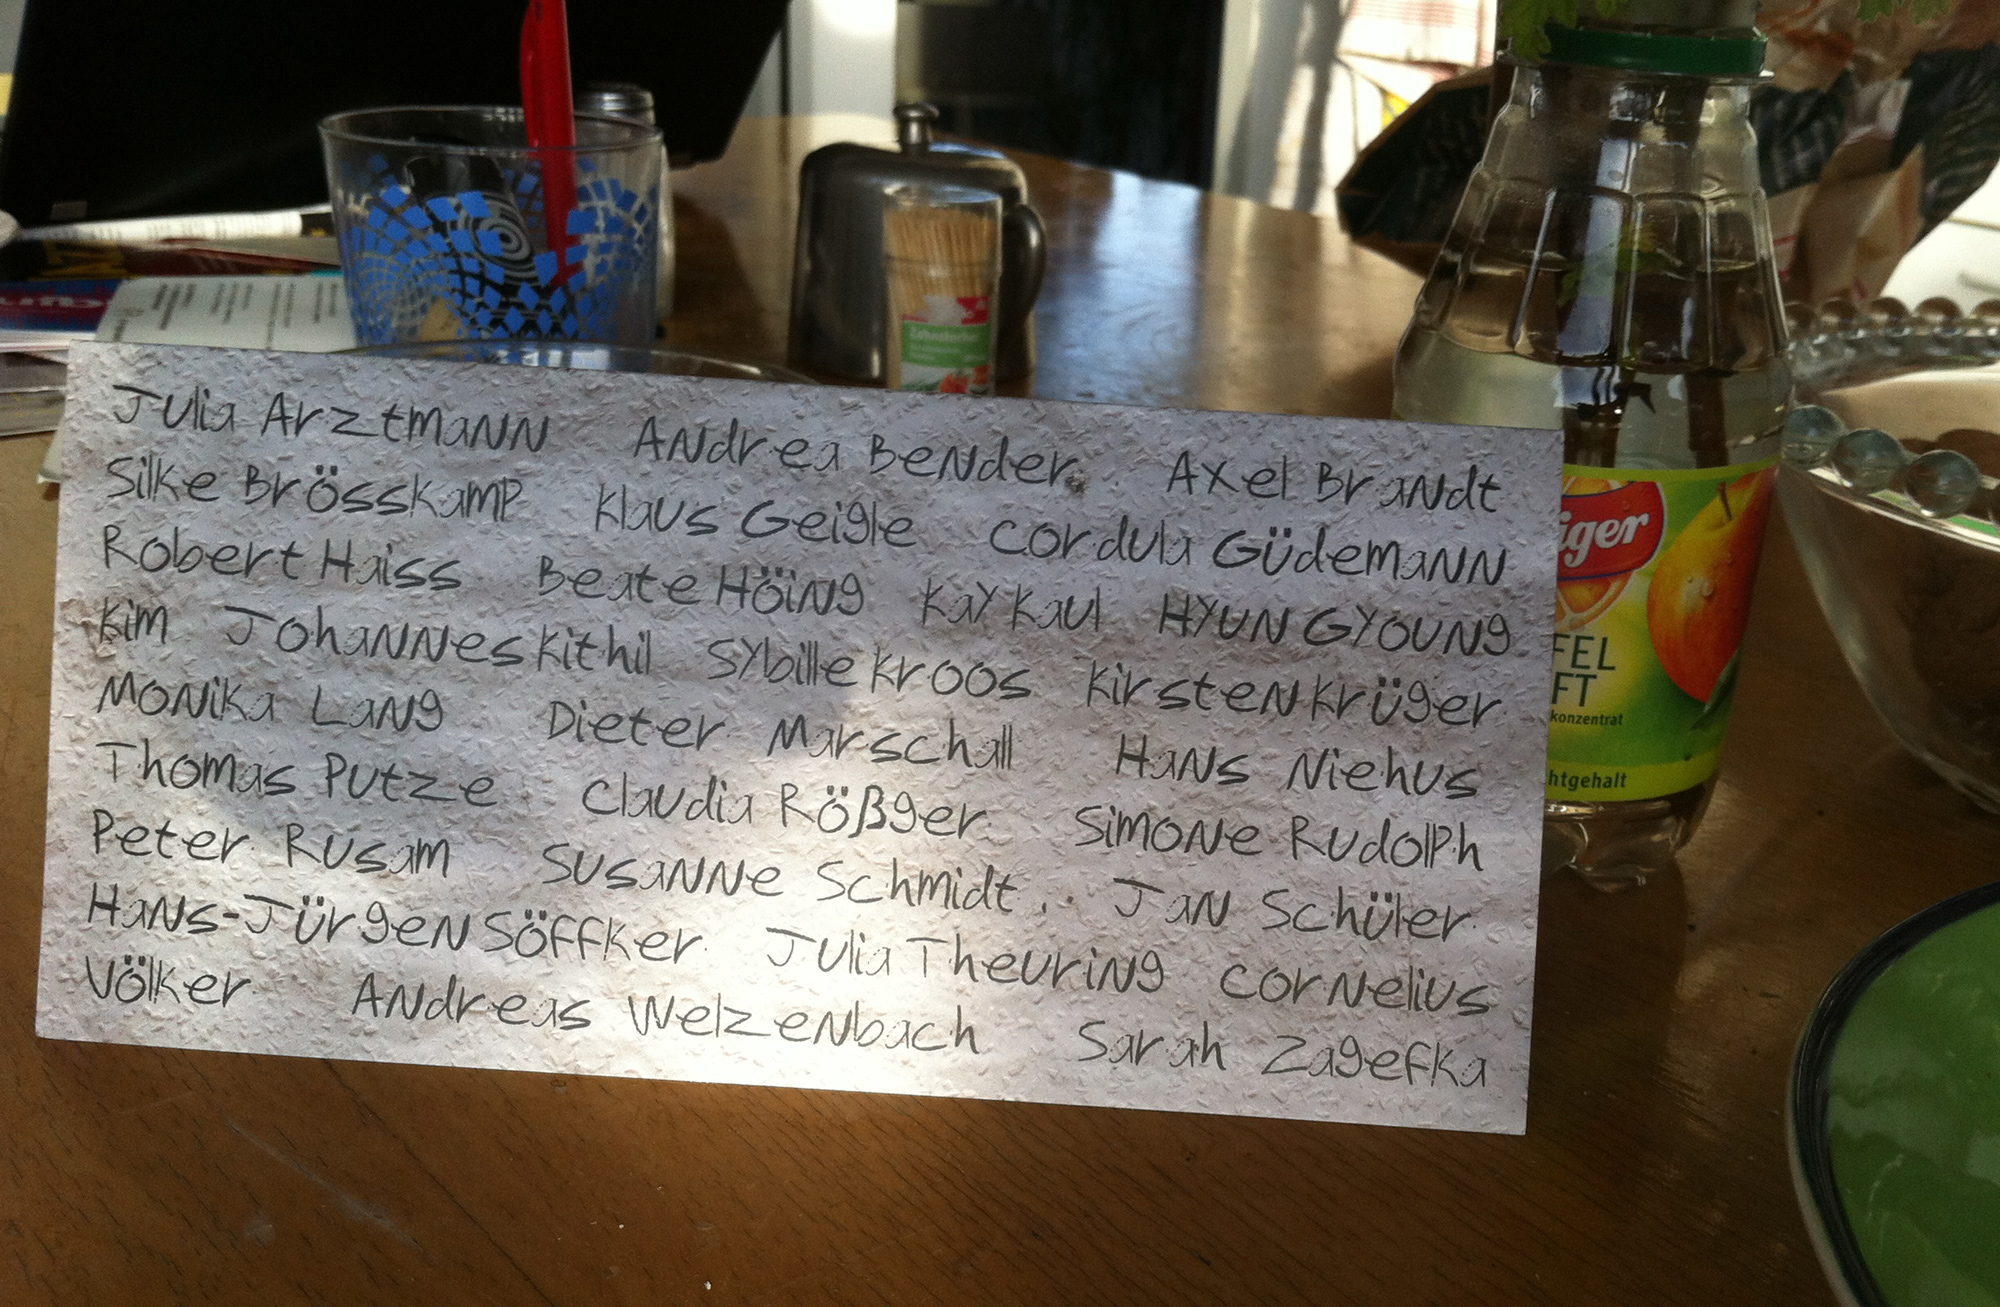 Julia Arztmann Andrea Bender Axel Brandt
Silke Brösskamp Klaus Geigle Cordula Güdemann
Robert Haiss Beate Höing Kay Kaul Hyun Gyoung
Kim Johannes Kithil Sybille Kroos Kirsten Krüger
Monika Lang Dieter Marschall Hans Niehus
Thomas Putze Claudia Rößger Simone Rudolph
Peter Rusam Susanne Schmidt.. Jan Schüler
Hans-Jürgen Söffker Julia Theuring Cornelius
Völker Andreas Welzenbach Sarah Zagefka
Zahnstocher
iger
FEL
FT
konzentrat
htgehalt